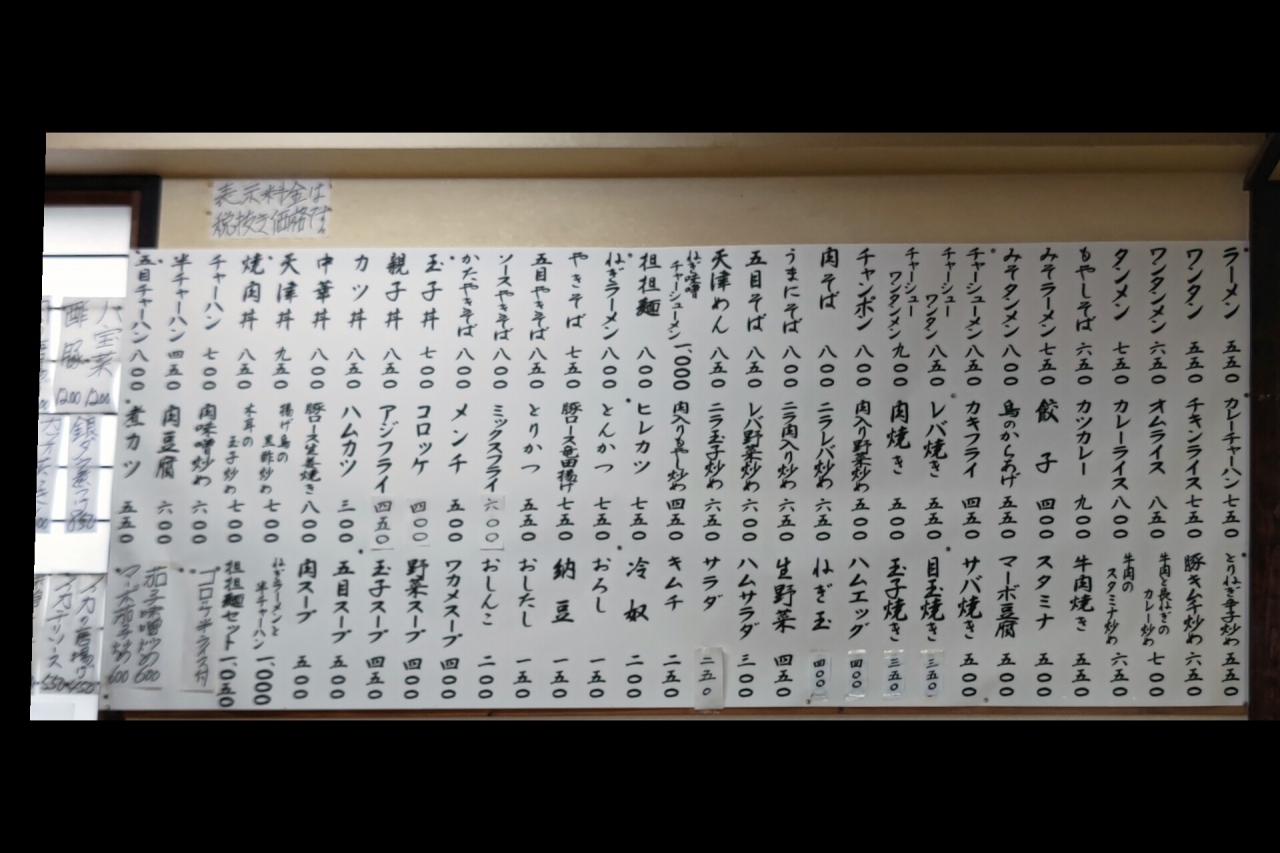 表示料金は
税抜き価格です。
ラーメン 五五〇
ワンタン 五五〇
ワンタンメン 六五〇
タンメン 七五〇
もやしそば 六五〇
みそラーメン 七五〇
みそタンメン 八〇〇
チャーシューメン 八〇〇
チャーシューワンタン 八五〇
チャーシューワンタンメン 九〇〇
チャンポン 八〇〇
肉そば 八〇〇
うまにそば 八〇〇
五目そば 八五〇
天津めん 八五〇
ねぎ味噌チャーシューメン 一、〇〇〇
担担麺 八〇〇
ねぎラーメン 八〇〇
やきそば 七五〇
五目やきそば 八五〇
ソースやきそば 八〇〇
かたやきそば 八〇〇
玉子丼 七〇〇
親子丼 八五〇
カツ丼 八五〇
中華丼 八〇〇
天津丼 九五〇
焼肉丼 八五〇
チャーハン 七〇〇
半チャーハン 四五〇
五目チャーハン 八〇〇
カレーチャーハン 七五〇
チキンライス 七五〇
オムライス 八五〇
カレーライス 八〇〇
カツカレー 九〇〇
餃子 四〇〇
鳥のからあげ 五五〇
カキフライ 四五〇
レバ焼き 五五〇
肉焼き 五〇〇
肉入り野菜炒め 五〇〇
ニラレバ炒め 六五〇
ニラ肉入り炒め 六五〇
レバ野菜炒め 六五〇
ニラ玉子炒め 六五〇
肉入りもやし炒め 四五〇
ヒレカツ 七五〇
とんかつ 七五〇
豚ロース竜田揚げ 七五〇
とりかつ 五五〇
ミックスフライ 六〇〇
メンチ 五〇〇
コロッケ 四〇〇
アジフライ 四五〇
ハムカツ 三〇〇
豚ロース生姜焼き 八〇〇
揚げ鳥の黒酢炒め 七〇〇
木耳の玉子炒め 七〇〇
肉味噌炒め 六〇〇
肉豆腐 六〇〇
煮カツ 五五〇
とりねぎ辛子炒め 五五〇
豚キムチ炒め 六五〇
牛肉と長ねぎのカレー炒め 七〇〇
牛肉のスタミナ炒め 六五〇
牛肉焼き 五五〇
スタミナ 五〇〇
マーボ豆腐 五五〇
サバ焼き 五〇〇
目玉焼き 三五〇
玉子焼き 三五〇
ハムエッグ 四〇〇
ねぎ玉 四〇〇
生野菜 四五〇
ハムサラダ 三〇〇
サラダ 二五〇
キムチ 二五〇
冷奴 二〇〇
おろし 一五〇
納豆 一五〇
おしたし 一五〇
おしんこ 二〇〇
ワカメスープ 四〇〇
野菜スープ 四〇〇
玉子スープ 四五〇
五目スープ 五〇〇
肉スープ 五〇〇
ねぎラーメンと半チャーハン 一、〇〇〇
担担麺セット 一、〇五〇
コロッケ半ライス付
茄子味噌炒め 600
マーボ茄子炒め 600
八宝菜 1200
酢豚 1200
銀ダラ煮つけ 850